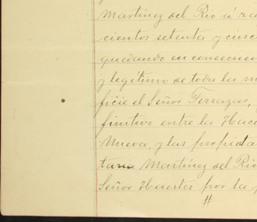 Martinez del Rio á ra
cientos setenta y cinco
quedando en consecuen
y legítimo de toda la su
ficie el Señor Terrazas,
finitivo entre la Hace
Nueva, y las propieda
tario Martinez del Rio
Señor Huertas por la p
#